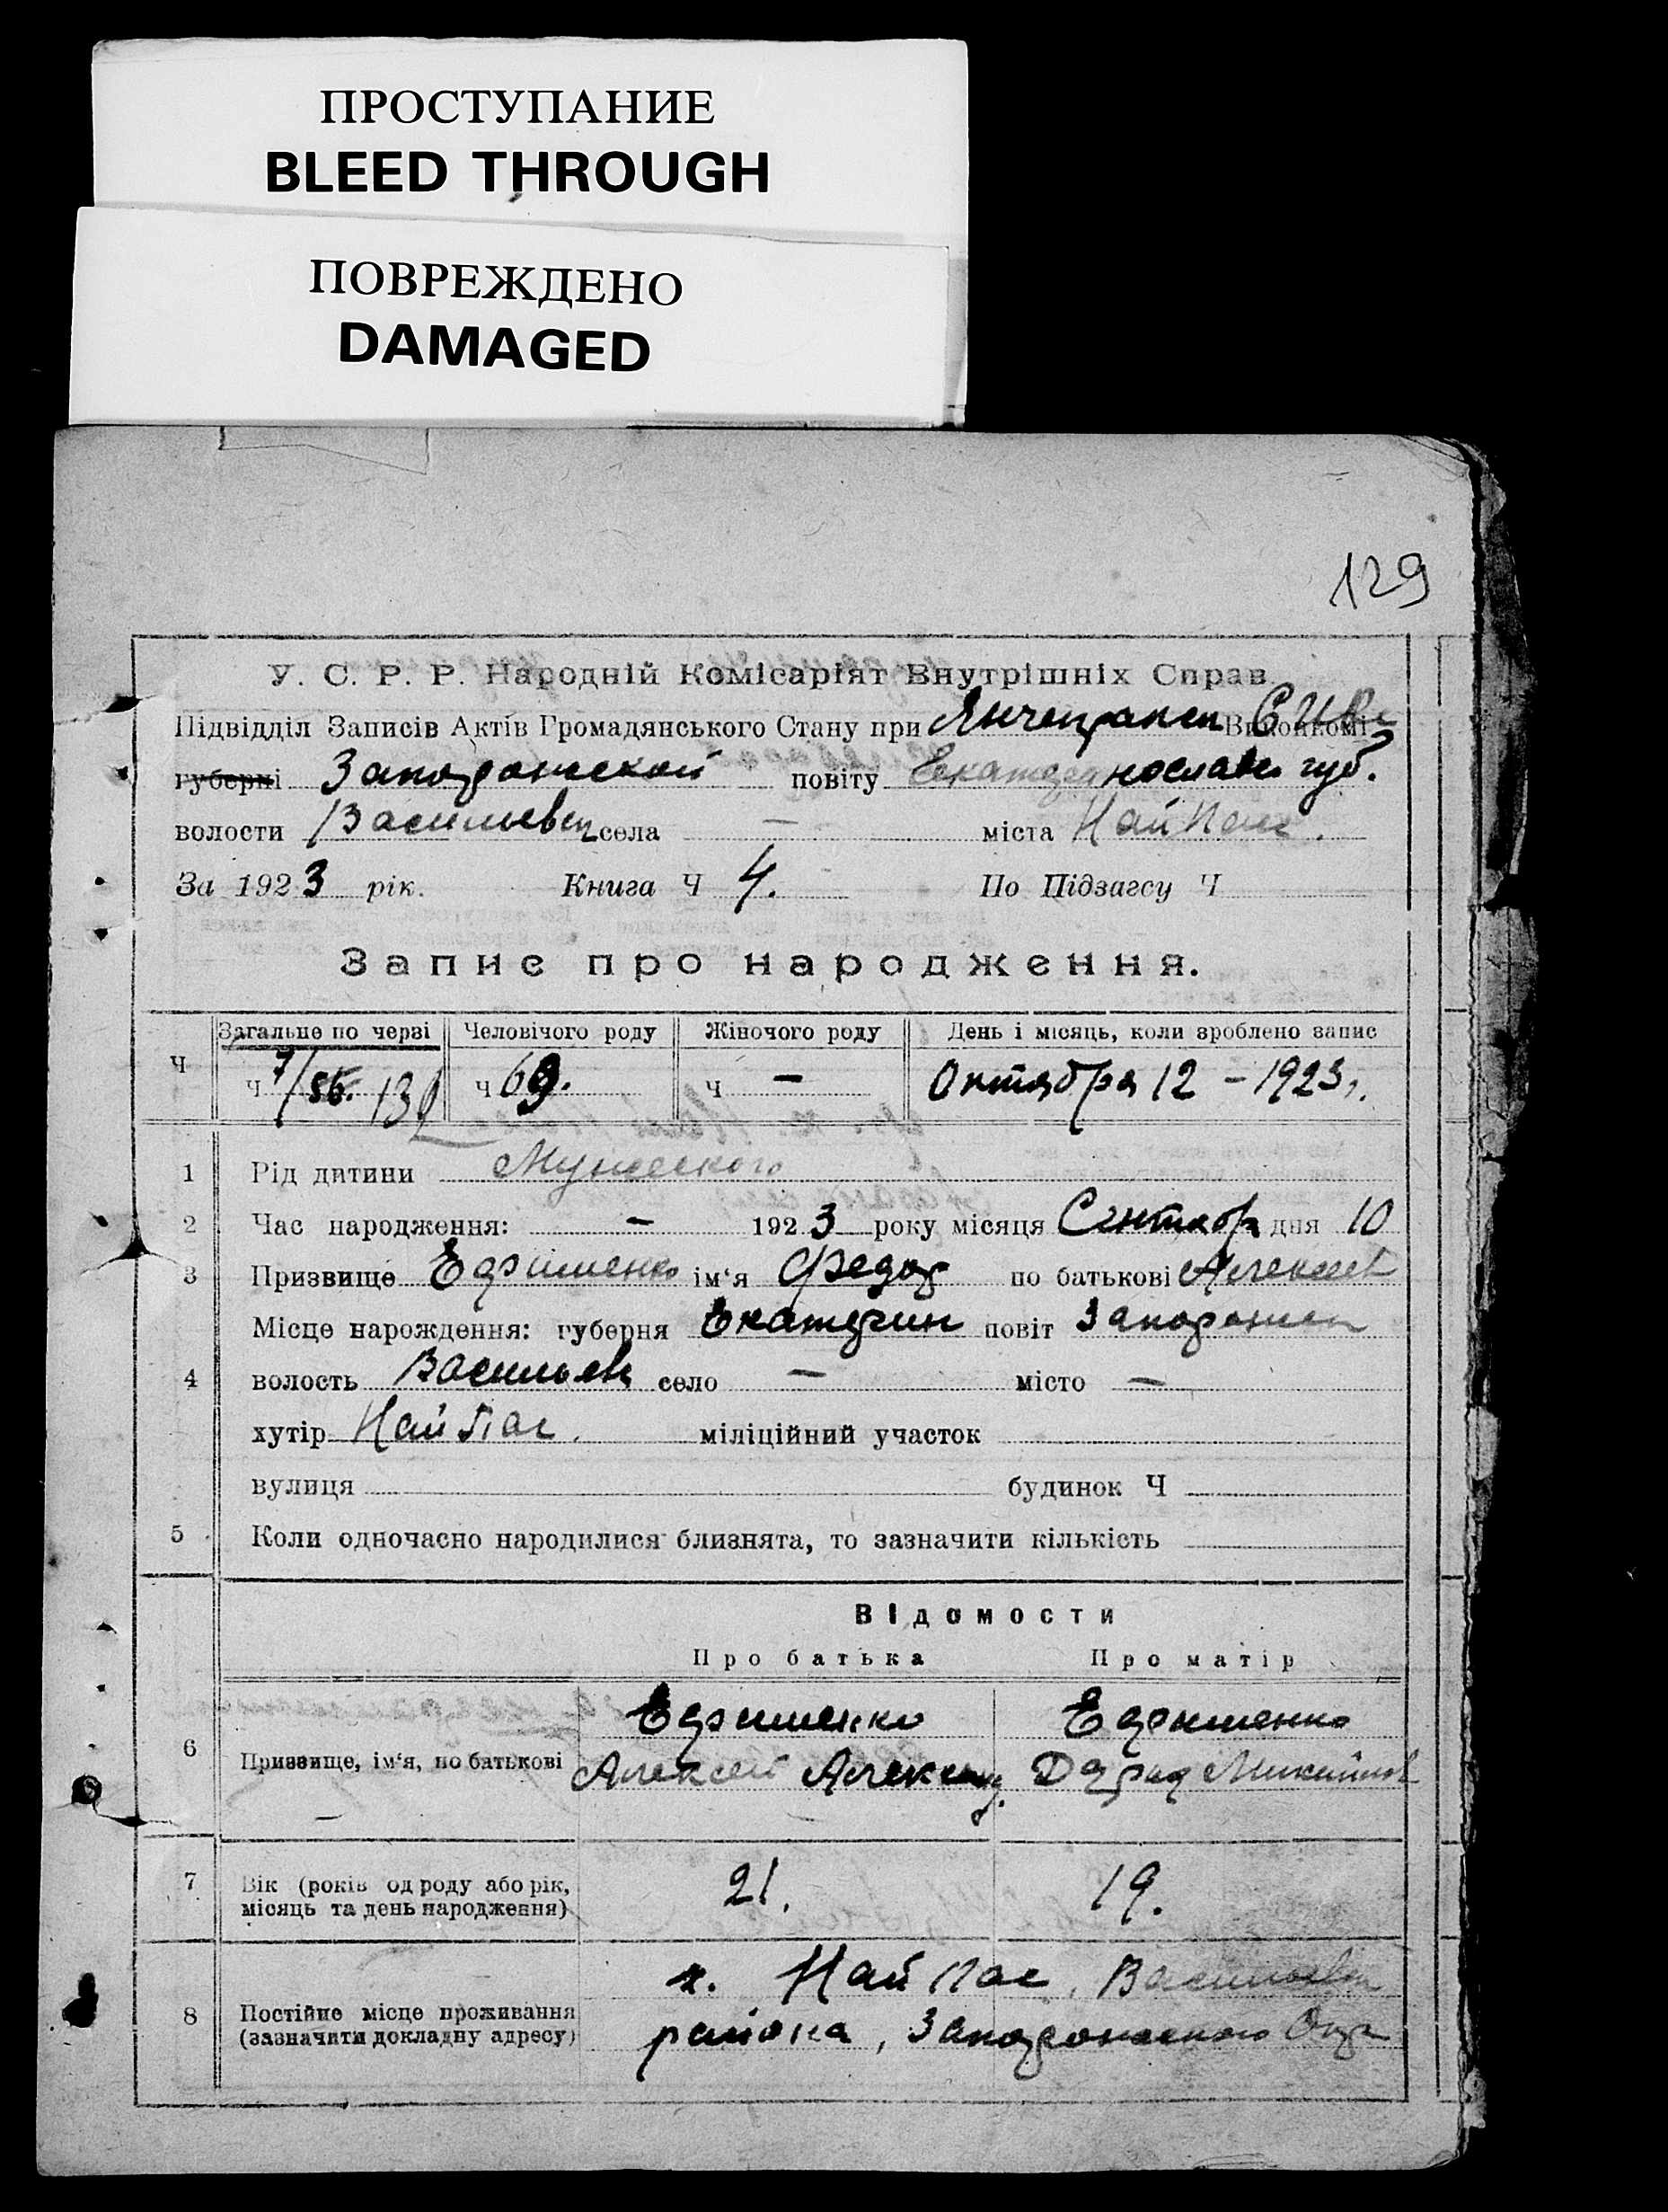 ПРОСТУПАНИЕ
BLEED THROUGH
ПОВРЕЖДЕНО
DAMAGED
129
У. С. Р. Р. Народній Комісаріят Внутрішніх Справ
Підвідділ Записів Актів Громадянського Стану при Виконкомі
губерні Запорожской повіту Екатеринославс губ.
волости Васильевс села — міста Най Пас.
За 1923 рік. Книга Ч 4. По Підзагсу Ч
Запис про народження.
Загальне по черзі Человічого роду Жіночого роду День і місяць, коли зроблено запис
Ч Ч Ч 69. Ч — Октября 12 – 1923 г.
1 Рід дитини Мужеского
2 Час народження: — 1923 року місяця Сентябр дня 10
3 Призвище ім'я Федор по батькові Алексеев
Місце нарождення: губерня Екатерин повіт Запорожск
4 волость Васильев село — місто —
хутір Най Пас. міліційний участок
вулиця будинок Ч
5 Коли одночасно народилися близнята, то зазначити кількість
Відомости
Про батька Про матір
6 Призвище, ім'я, по батькові
Алексей Александ.
7 Вік (років од роду або рік, місяць та день народження) 21. 19.
х. Най Пас, Васильевск
8 Постійне місце проживання (зазначити докладну адресу) района, Запорожского Окр